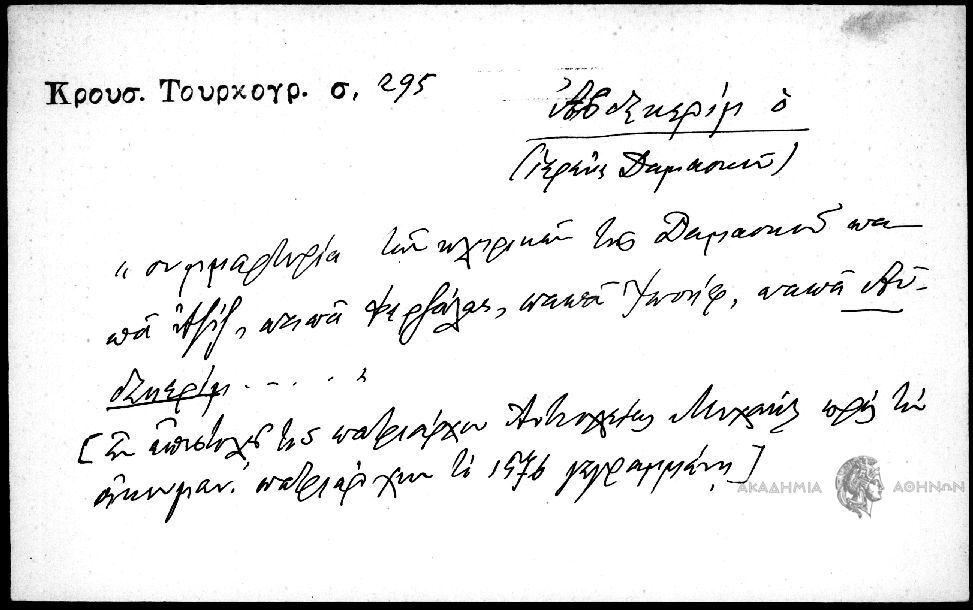 Κρουσ. Τουρκογρ. σ, 295
Ἀβδεκερίμ ὁ
(ἱερεὺς Δαμασκοῦ)
"συμμαρτυρία τῶν κληρικῶν τῆς Δαμασκοῦ πα-
πᾶ Ἀζίζ, παπᾶ παπᾶ Ἰωσήφ, παπᾶ Αὐ-
δεκερίμ . . . . "
[ἐν ἐπιστολῇ τῆς πατριάρχου Ἀντιοχείας Μιχαήλ πρὸς τὸν
οἰκουμεν. πατριάρχην τῷ 1576 γεγραμμένῃ]
ΑΚΑΔΗΜΙΑ ΑΘΗΝΩΝ